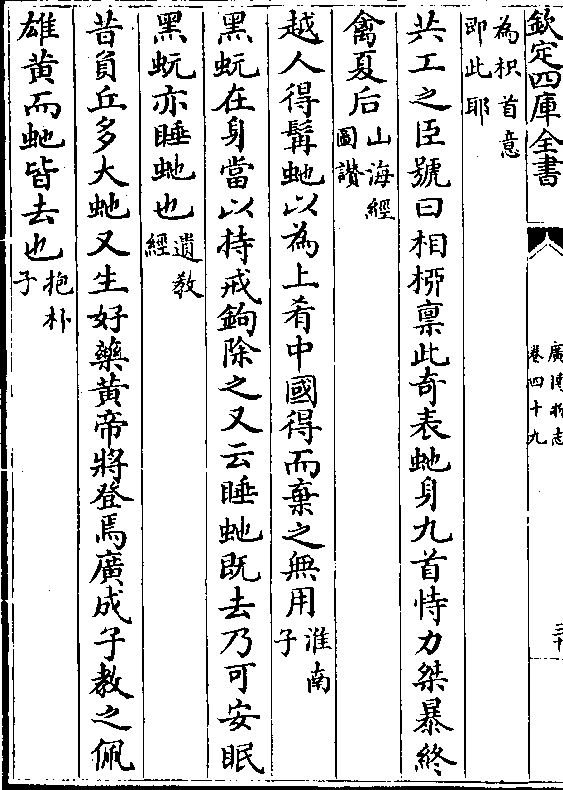 欽定四庫全書
廣博物志
卷四十九
三十
為枳首意
即此耶
共工之臣號曰相栁禀此奇表虵身九首恃力桀暴終
禽夏后山海經
圖讃
越人得髯虵以為上肴中國得而棄之無用淮南
子
黑蚖在身當以持戒鉤除之又云睡虵既去乃可安眠
黑蚖亦睡虵也遺教
經
昔員丘多大虵又生好藥黄帝將登焉廣成子教之佩
雄黄而虵皆去也抱朴
子